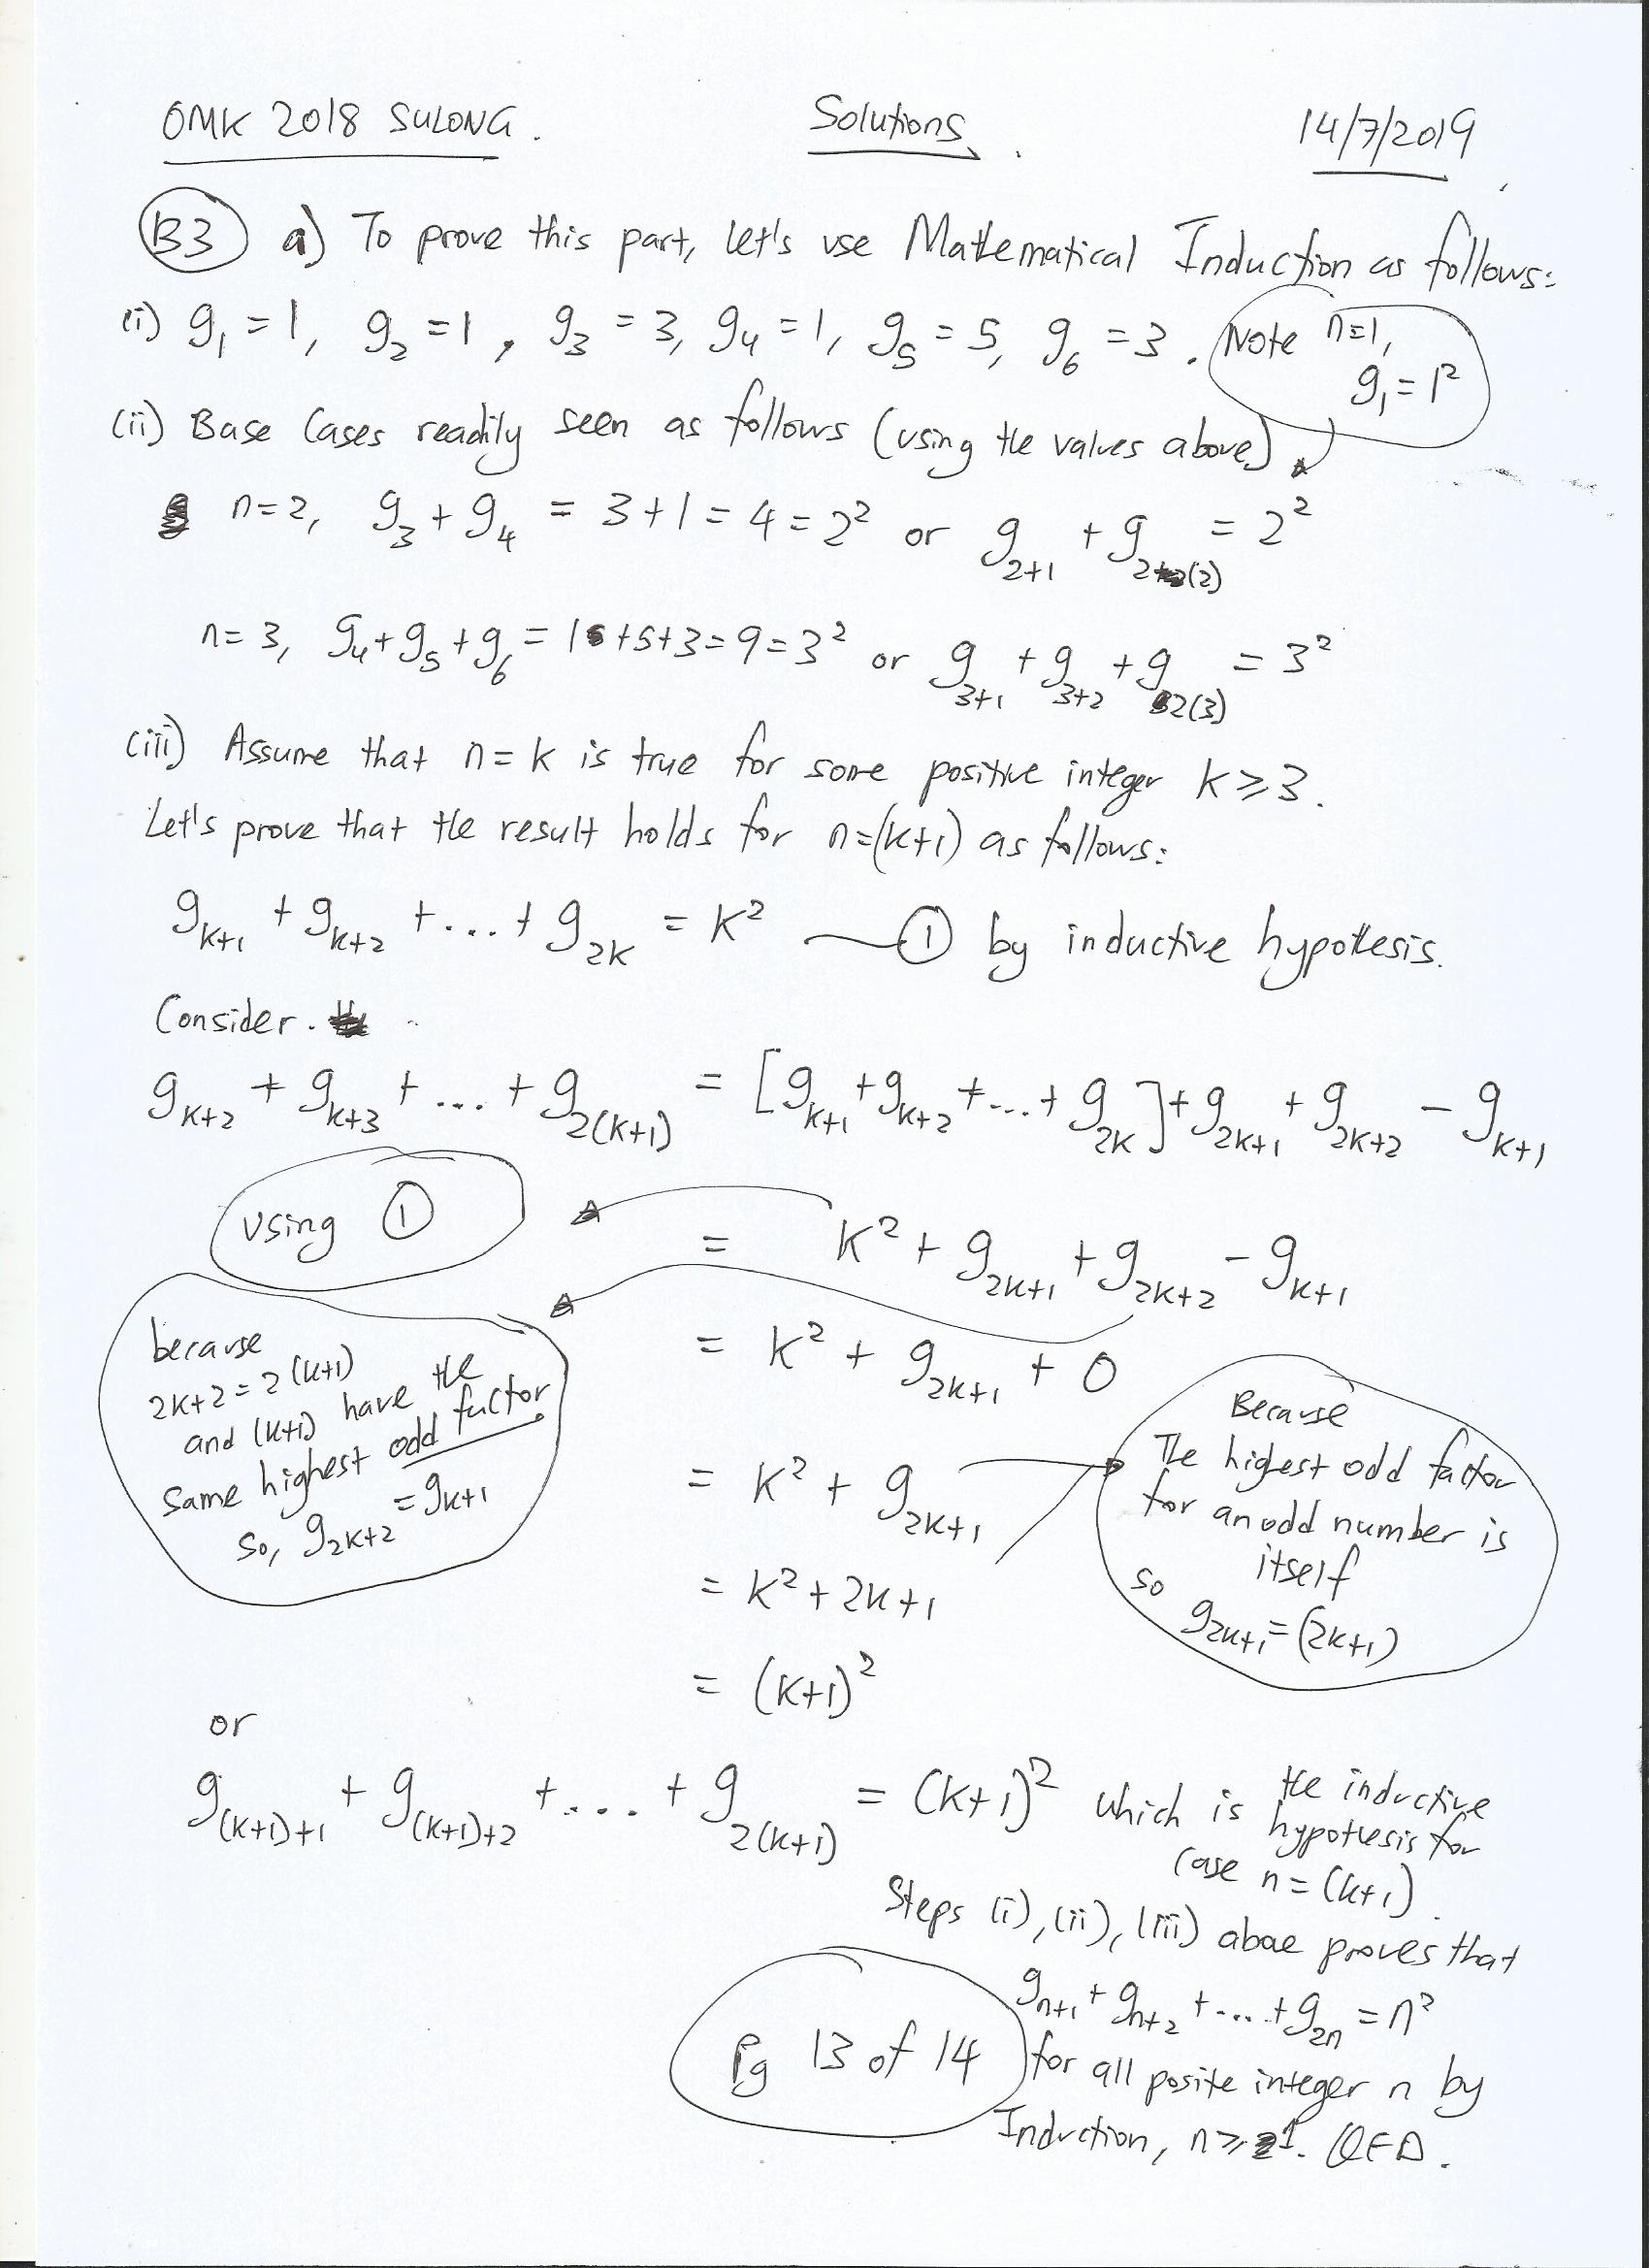 OMK 2018 SULONG. Solutions. 14/7/2019
B3 a) To prove this part, let's use Mathematical Induction as follows:
(i) g₁ = 1, g₂ = 1, g₃ = 3, g₄ = 1, g₅ = 5, g₆ = 3. Note n=1,
g₁ = 1²
(ii) Base Cases readily seen as follows (using the values above)
n=2, g₃ + g₄ = 3+1 = 4 = 2² or g_{2+1} + g_{2(2)} = 2²
n=3, g₄+g₅+g₆ = 1+5+3=9=3² or g_{3+1} + g_{3+2} + g_{2(3)} = 3²
(iii) Assume that n=k is true for some positive integer k≥3.
Let's prove that the result holds for n=(k+1) as follows:
g_{k+1} + g_{k+2} + ... + g_{2k} = k² — ① by inductive hypothesis.
Consider.
g_{k+2} + g_{k+3} + ... + g_{2(k+1)} = [g_{k+1} + g_{k+2} + ... + g_{2k}] + g_{2k+1} + g_{2k+2} - g_{k+1}
using ①
= k² + g_{2k+1} + g_{2k+2} - g_{k+1}
because
2k+2 = 2(k+1)
and (k+1) have the
same highest odd factor
so, g_{2k+2} = g_{k+1}
= k² + g_{2k+1} + 0
= k² + g_{2k+1}
Because
The highest odd factor
for an odd number is
itself
so g_{2k+1} = (2k+1)
= k² + 2k+1
= (k+1)²
or
g_{(k+1)+1} + g_{(k+1)+2} + .... + g_{2(k+1)} = (k+1)² which is the inductive
hypothesis for
case n=(k+1).
Steps (i), (ii), (iii) abae proves that
g_{n+1} + g_{n+2} + ... + g_{2n} = n²
for all posite integer n by
Induction, n ≥ 1. QED.
Pg 13 of 14